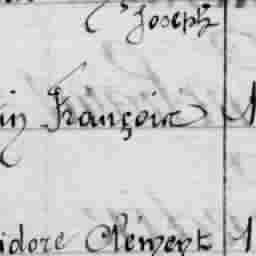 Joseph
in François 1
idore Clément 1